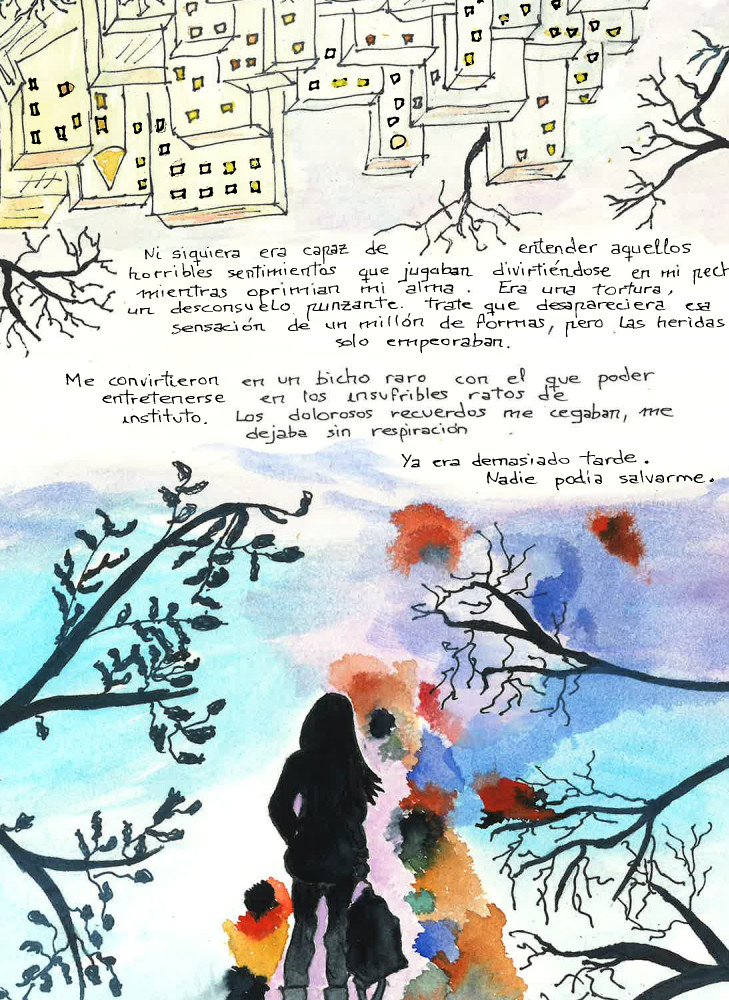 Ni siquiera era capaz de entender aquellos
horribles sentimientos que jugaban divirtiéndose en mi pech
mientras oprimian mi alma. Era una tortura,
un desconsuelo punzante. Trate que desapareciera esa
sensación de un millón de formas, pero las heridas
solo empeoraban.
Me convirtieron en un bicho raro con el que poder
entretenerse en los insufribles ratos de
instituto. Los dolorosos recuerdos me cegaban, me
dejaba sin respiración .
Ya era demasiado tarde.
Nadie podía salvarme.